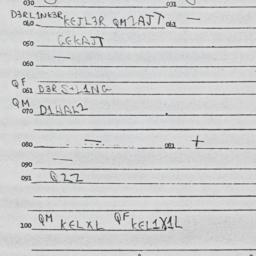 030 031
D3RL1NK3R
040 KEJL3R QM2AJT 041 —
050 GEKAJT
060 —
QF
061 D3RS+L1NG
QM
070 D1HAL2
080 — 081 +
090 —
091 QZZ
100 QM KELXL QF KEL1X1L